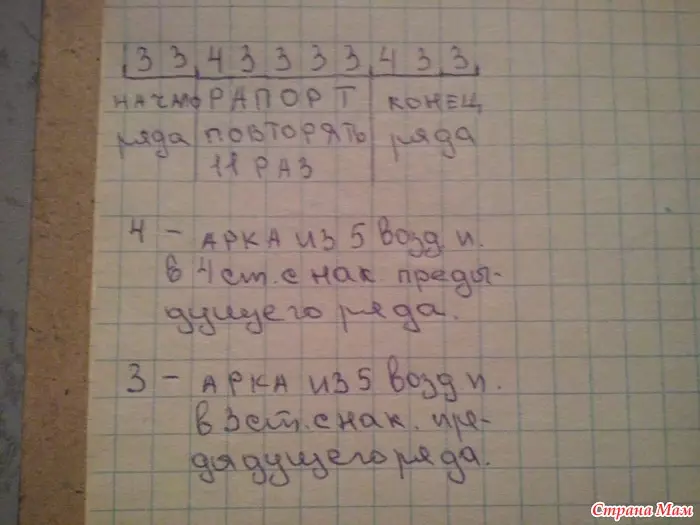 3 3 4 3 3 3 3 4 3 3
начало РАПОРТ конец
ряда ПОВТОРЯТЬ ряда
11 РАЗ
4 - АРКА ИЗ 5 возд п.
в 4 ст. с нак. преды-
дущего ряда.
3 - АРКА ИЗ 5 возд п.
в 3 ст. с нак. пре-
дыдущего ряда.
Страна Мам